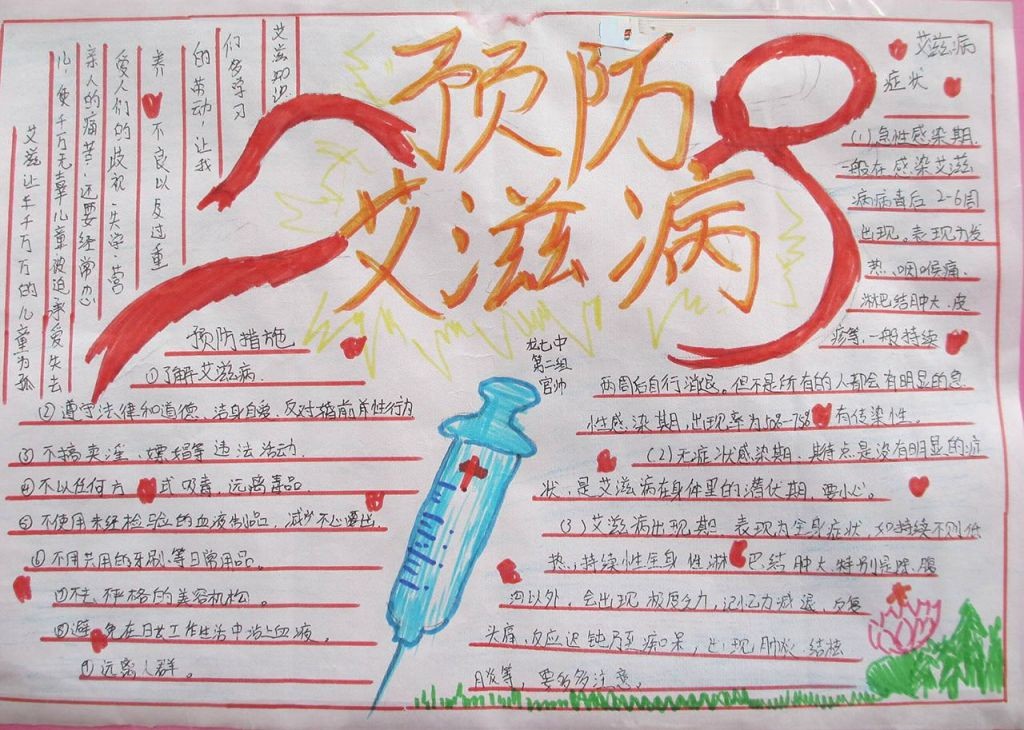 预防
艾滋病
艾滋让千千万万的儿童为孤
儿,使千万无辜儿童被迫承受失去
亲人的痛苦,还要经常忍
受人们的歧视、失学、营
养不良以及过重
的劳动,让我
们多学习
艾滋知识
预防措施
①了解艾滋病.
②遵守法律和道德、洁身自爱、反对婚前性行为
③不搞卖淫、嫖娼等违法活动.
④不以任何方式吸毒,远离毒品.
⑤不使用未经检验的血液制品,减少不必要出
⑥不用共用的牙刷等日常用品。
⑦不去严格的美容机构。
⑧避免在日常工作生活中沾上血液。
⑨远离人群。
七中
第二组
官帅
艾滋病
症状
(1)急性感染期.
一般在感染艾滋
病病毒后2-6周
出现。表现为发
热、咽喉痛、
淋巴结肿大、皮
疹等、一般持续
两周后自行消退。但不是所有的人都会有明显的急
性感染期,出现率为50%-75%有传染性。
(2)无症状感染期.其特点是没有明显的症
状,是艾滋病在身体里的潜伏期,要小心。
(3)艾滋病出现期.表现为全身症状,如持续不规低
热,持续性全身性淋巴结肿大.特别是除腹
沟以外,会出现极度乏力,记忆力减退、反复
头痛、反应迟钝乃至痴呆,出现肺炎、结核
肠炎等,要多多注意。